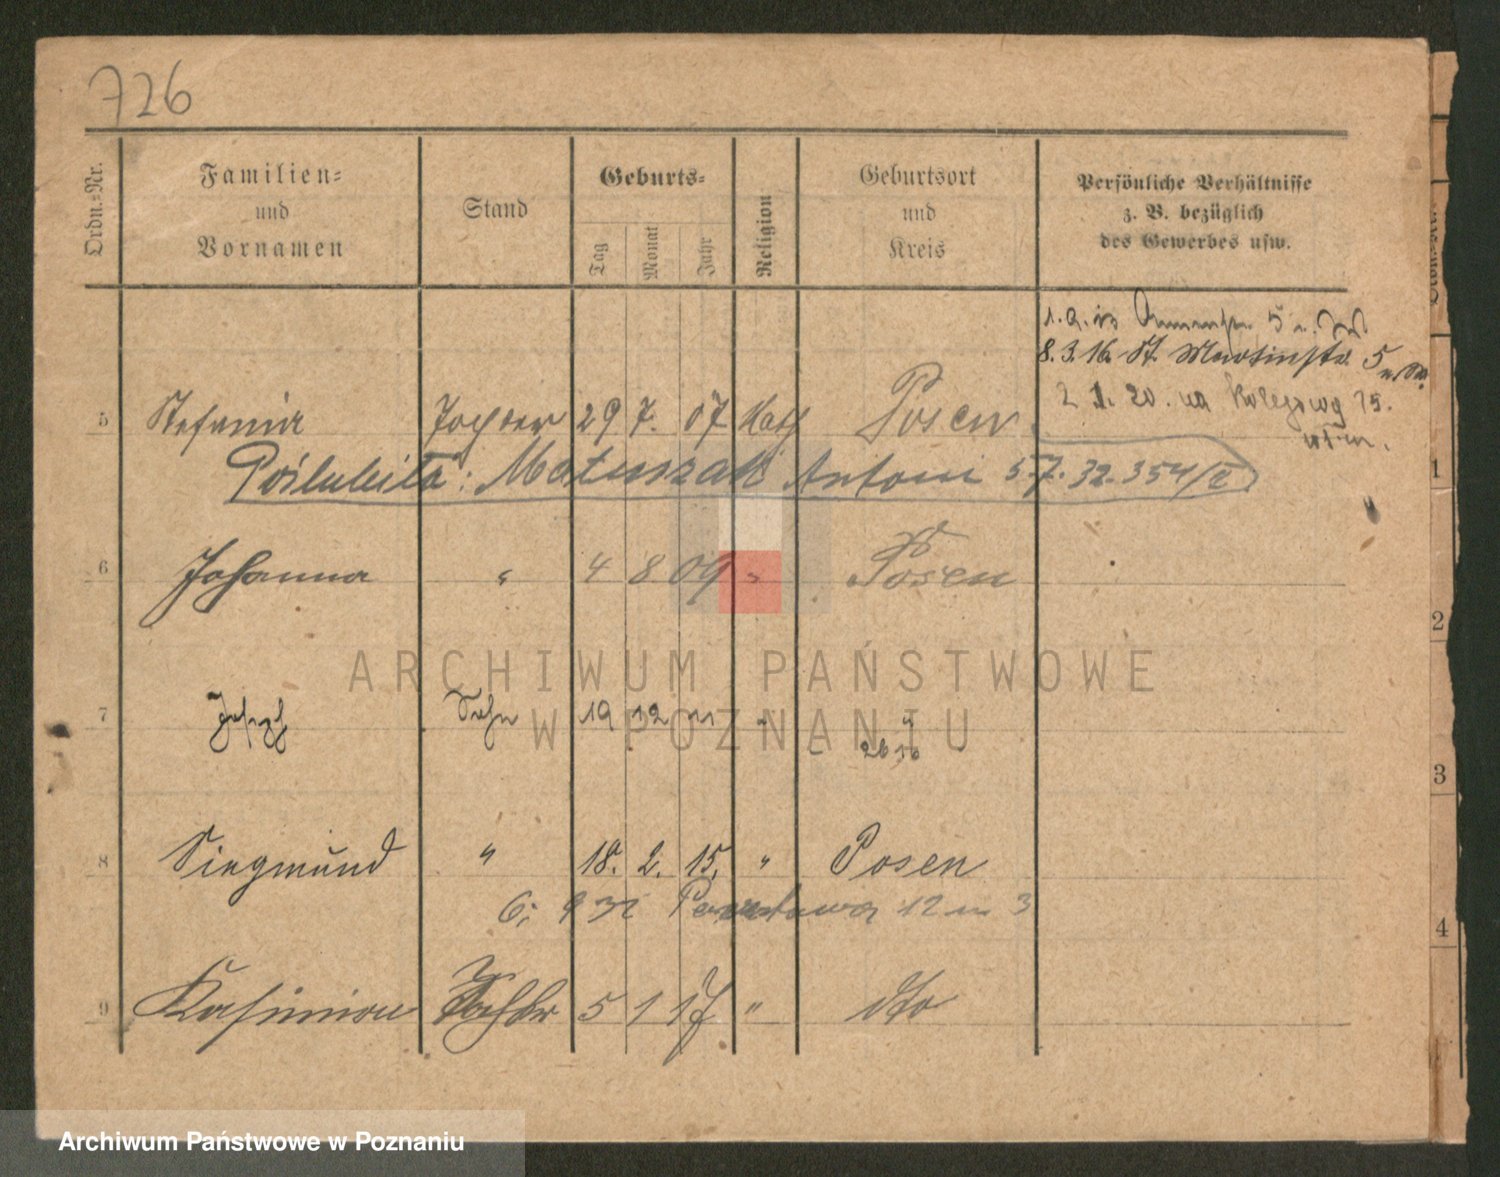 726
Ordn.-Nr.
Familien-
und
Vornamen
Stand
Geburts-
Tag
Monat
Jahr
Religion
Geburtsort
und
Kreis
Persönliche Verhältnisse
z. B. bezüglich
des Gewerbes usw.
5
8.3.16 St. Martinstr. 5
5 Stefania Tochter 29 7. 07 Kath Posen
2 1. 20. na
Poślubiła: Matuszak Antoni 5.7.32. 354/II
6 Johanna " 4 8 09 " Posen
ARCHIWUM PAŃSTWOWE
W POZNANIU
7 Joseph Sohn 19 12 " "
8 Siegmund " 18. 2. 15. " Posen
6; 9 31 12 m 3
9 Kasimira Tochter 5 1 17 " dto
1
2
3
4
Archiwum Państwowe w Poznaniu